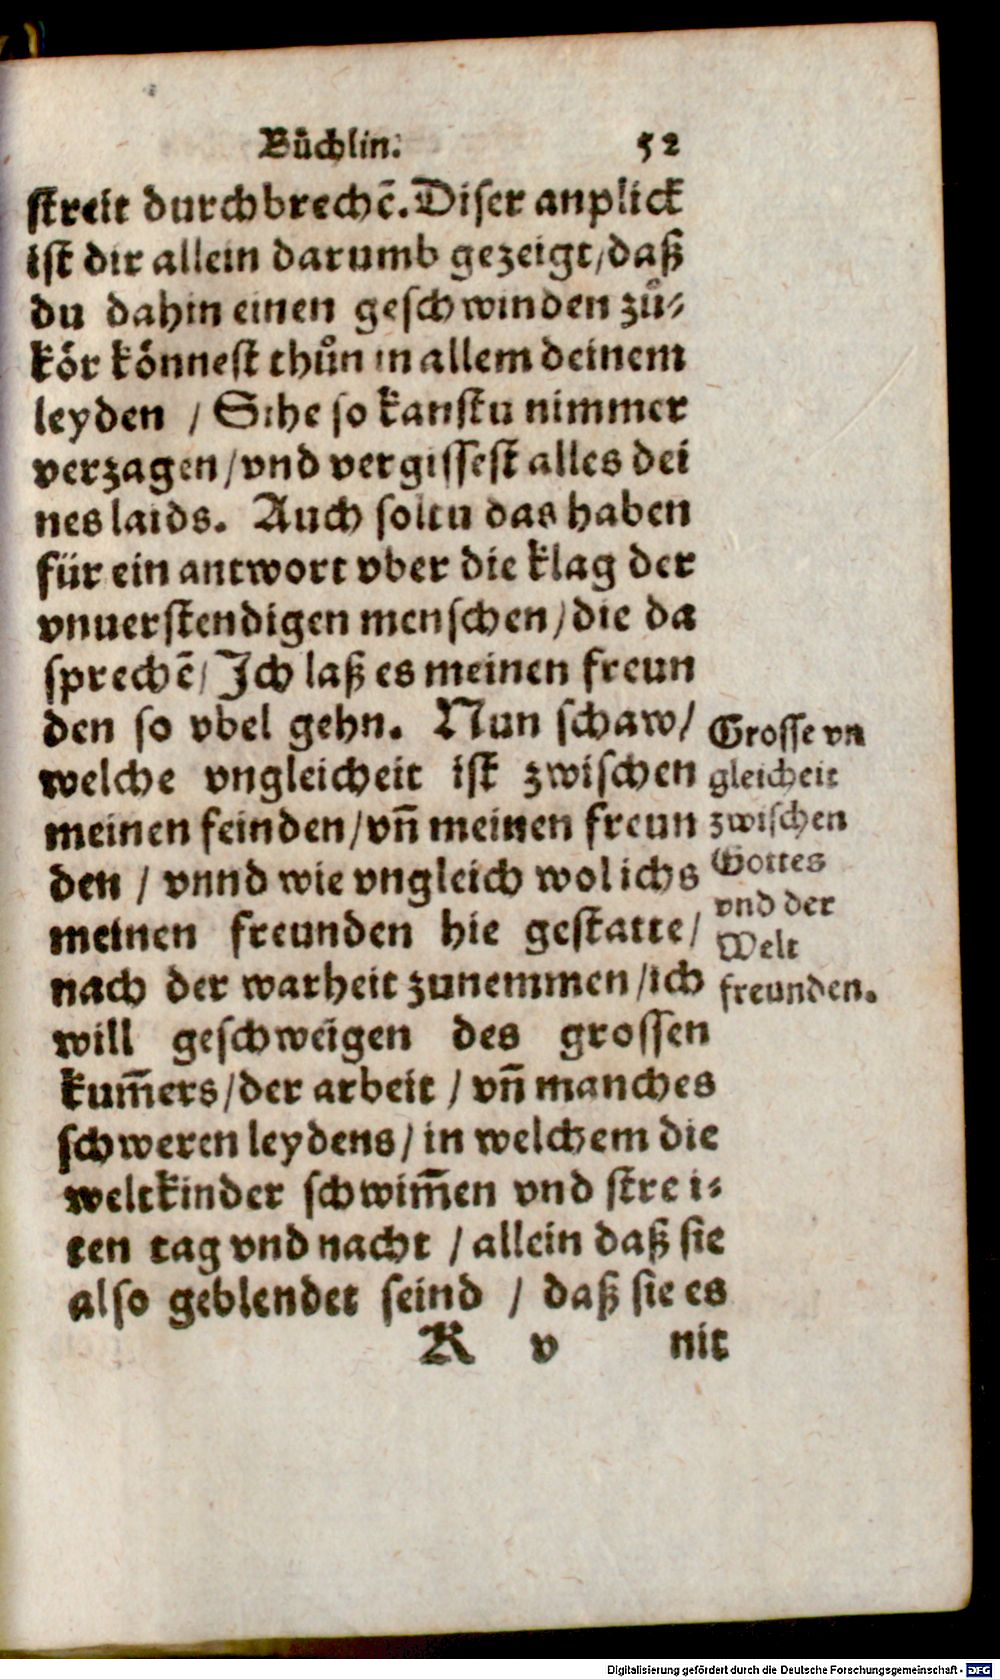 Bůchlin. 52
streit durchbrechẽ. Diser anplick
ist dir allein darumb gezeigt/ daß
du dahin einen geschwinden zů-
kör könnest thůn in allem deinem
leyden / Sihe so kanstu nimmer
verzagen/ vnd vergissest alles dei
nes laids. Auch soltu das haben
für ein antwort vber die klag der
vnuerstendigen menschen/ die da
sprechẽ/ Ich laß es meinen freun
den so vbel gehn. Nun schaw/
welche vngleicheit ist zwischen
meinen feinden/ vñ meinen freun
den / vnnd wie vngleich wol ichs
meinen freunden hie gestatte/
nach der warheit zunemmen/ ich
will geschweigen des grossen
kum̃ers/ der arbeit / vñ manches
schweren leydens/ in welchem die
weltkinder schwim̃en vnd strei-
ten tag vnd nacht / allein daß sie
also geblendet seind / daß sie es
K v nit
Grosse vn
gleicheit
zwischen
Gottes
vnd der
Welt
freunden.
Digitalisierung gefördert durch die Deutsche Forschungsgemeinschaft - DFG